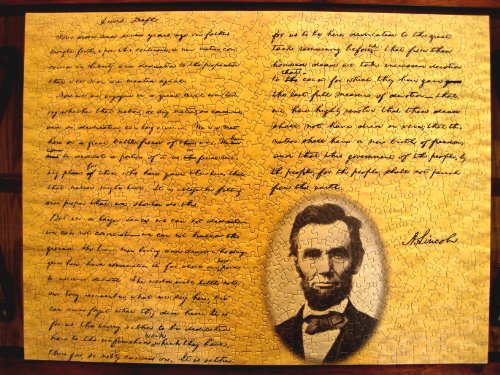 Four score and seven years ago our fathers
brought forth, upon this continent, a new nation, con-
ceived in liberty and dedicated to the proposition
that all men are created equal.
Now we are engaged in a great civil war, test-
ing whether that nation, or any nation so conceived
and so dedicated can long endure. We are met
here on a great battlefield of this war. We have
come to dedicate a portion of it as the final rest-
ing place of those who here gave their lives that
that nation might live. It is altogether fitting
and proper that we should do this.
But in a larger sense we can not dedicate
we can not consecrate we can not hallow this
ground. The brave men living and dead, who
here have consecrated it far above our poor power
to add or detract. The world will little note,
nor long remember, what we say here, but
can never forget what they did here. It is
for us the living rather to be dedicated
here to the unfinished work which they have,
thus far, so nobly carried on. It is rather
for us to be here dedicated to the great
task remaining before us that from these
honored dead we take increased devotion
to that cause for which they here gave
the last full measure of devotion that
we here highly resolve that these dead
shall not have died in vain; that the
nation shall have a new birth of freedom
and that this government of the people, by
the people for the people, shall not perish
from the earth.
A. Lincoln